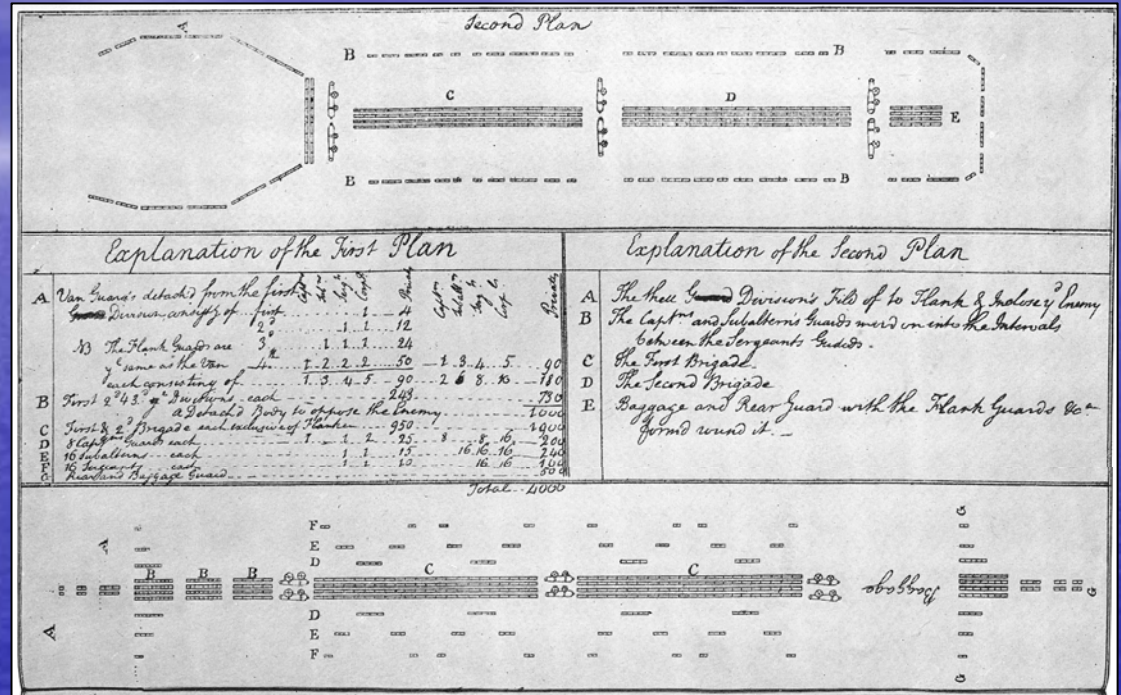 Second Plan
A
B B
C D
E
B B
Explanation of the First Plan
A Van Guards detach'd from the first Captns Serjts Corpls Privates Captns Serjts Corpls Privates
Guard Division consisting of first 1 4
2d 1 1 12
NB The Flank Guards are 3d 1 1 1 24
ye same as the Van 4th 1 2 2 2 50 1 3 4 5 90
each consisting of 1 3 4 5 90 2 6 8 10 180
B First 2d & 3d Divisions each 243 730
a Detach'd Body to oppose the Enemy 1000
C First & 2d Brigade each exclusive of Flankers 950 1900
D 8 Captns Guards each 1 1 2 25 8 8 16 200
E 16 Subalterns each 1 1 15 16 16 16 240
F 16 Sergeants each 1 1 10 16 16 160
G Rear and Baggage Guard 500
Total 4000
Explanation of the Second Plan
A The three Guard Division's Fil'd of to Flank & Inclose ye Enemy
B The Captns and Subaltern's Guards mov'd on into the Intervals
between the Sergeants Guards.
C The First Brigade
D The Second Brigade
E Baggage and Rear Guard with the Flank Guards &ca
form'd round it.
F
A E G
D
B B B C C
Baggage G
A D
E
F G